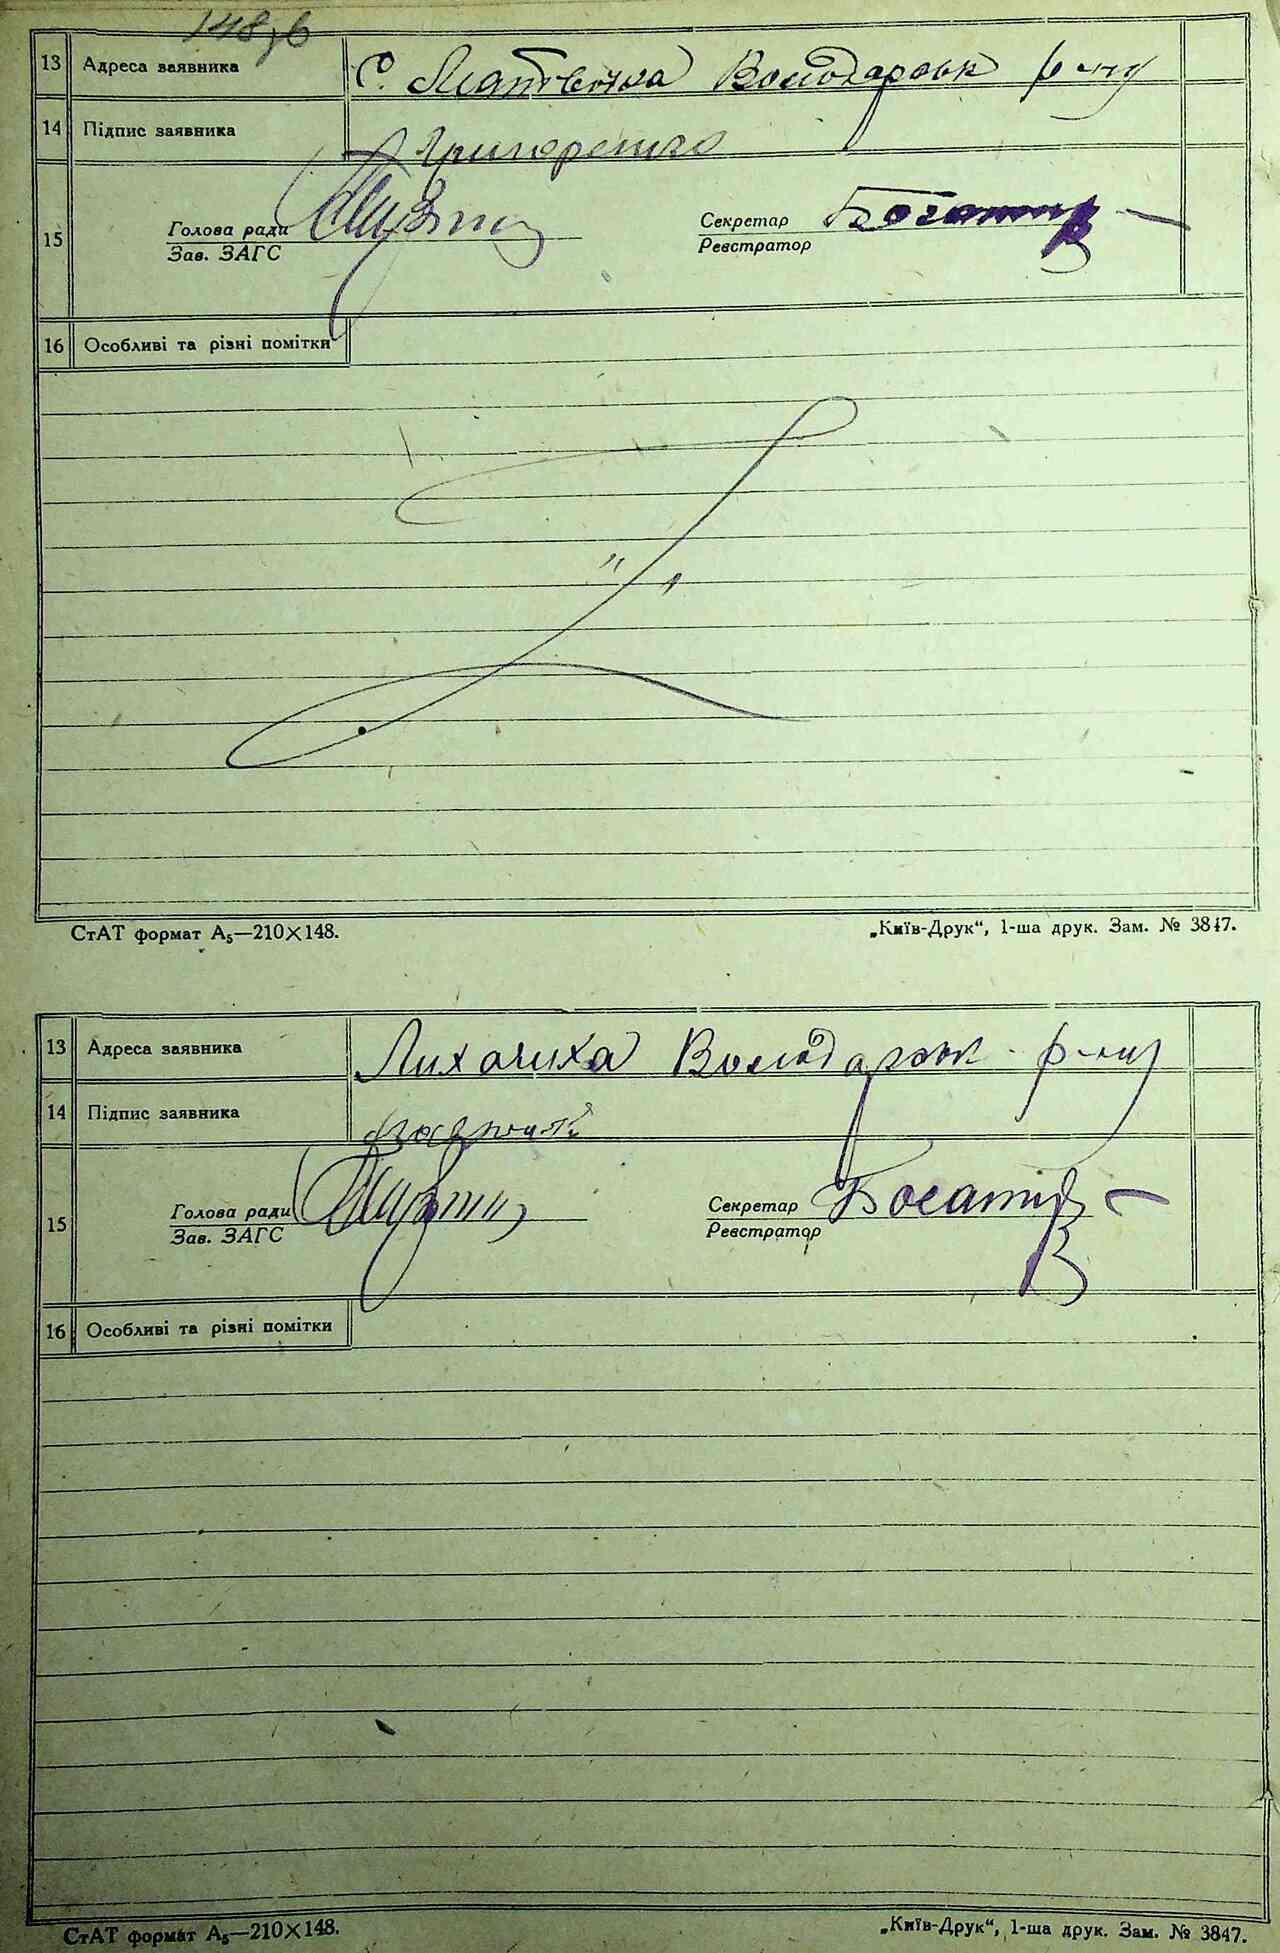 148зв
13 Адреса заявника С. Матвіїха Володарськ р-ну
14 Підпис заявника Григоренко
15 Голова ради Секретар Богатир
Зав. ЗАГС Реєстратор
16 Особливі та різні помітки
СтАТ формат А₅—210×148. „Київ-Друк“, 1-ша друк. Зам. № 3847.
13 Адреса заявника Лихачиха Володарськ р-ну
14 Підпис заявника
15 Голова ради Секретар Богатир
Зав. ЗАГС Реєстратор
16 Особливі та різні помітки
СтАТ формат А₅—210×148. „Київ-Друк“, 1-ша друк. Зам. № 3847.